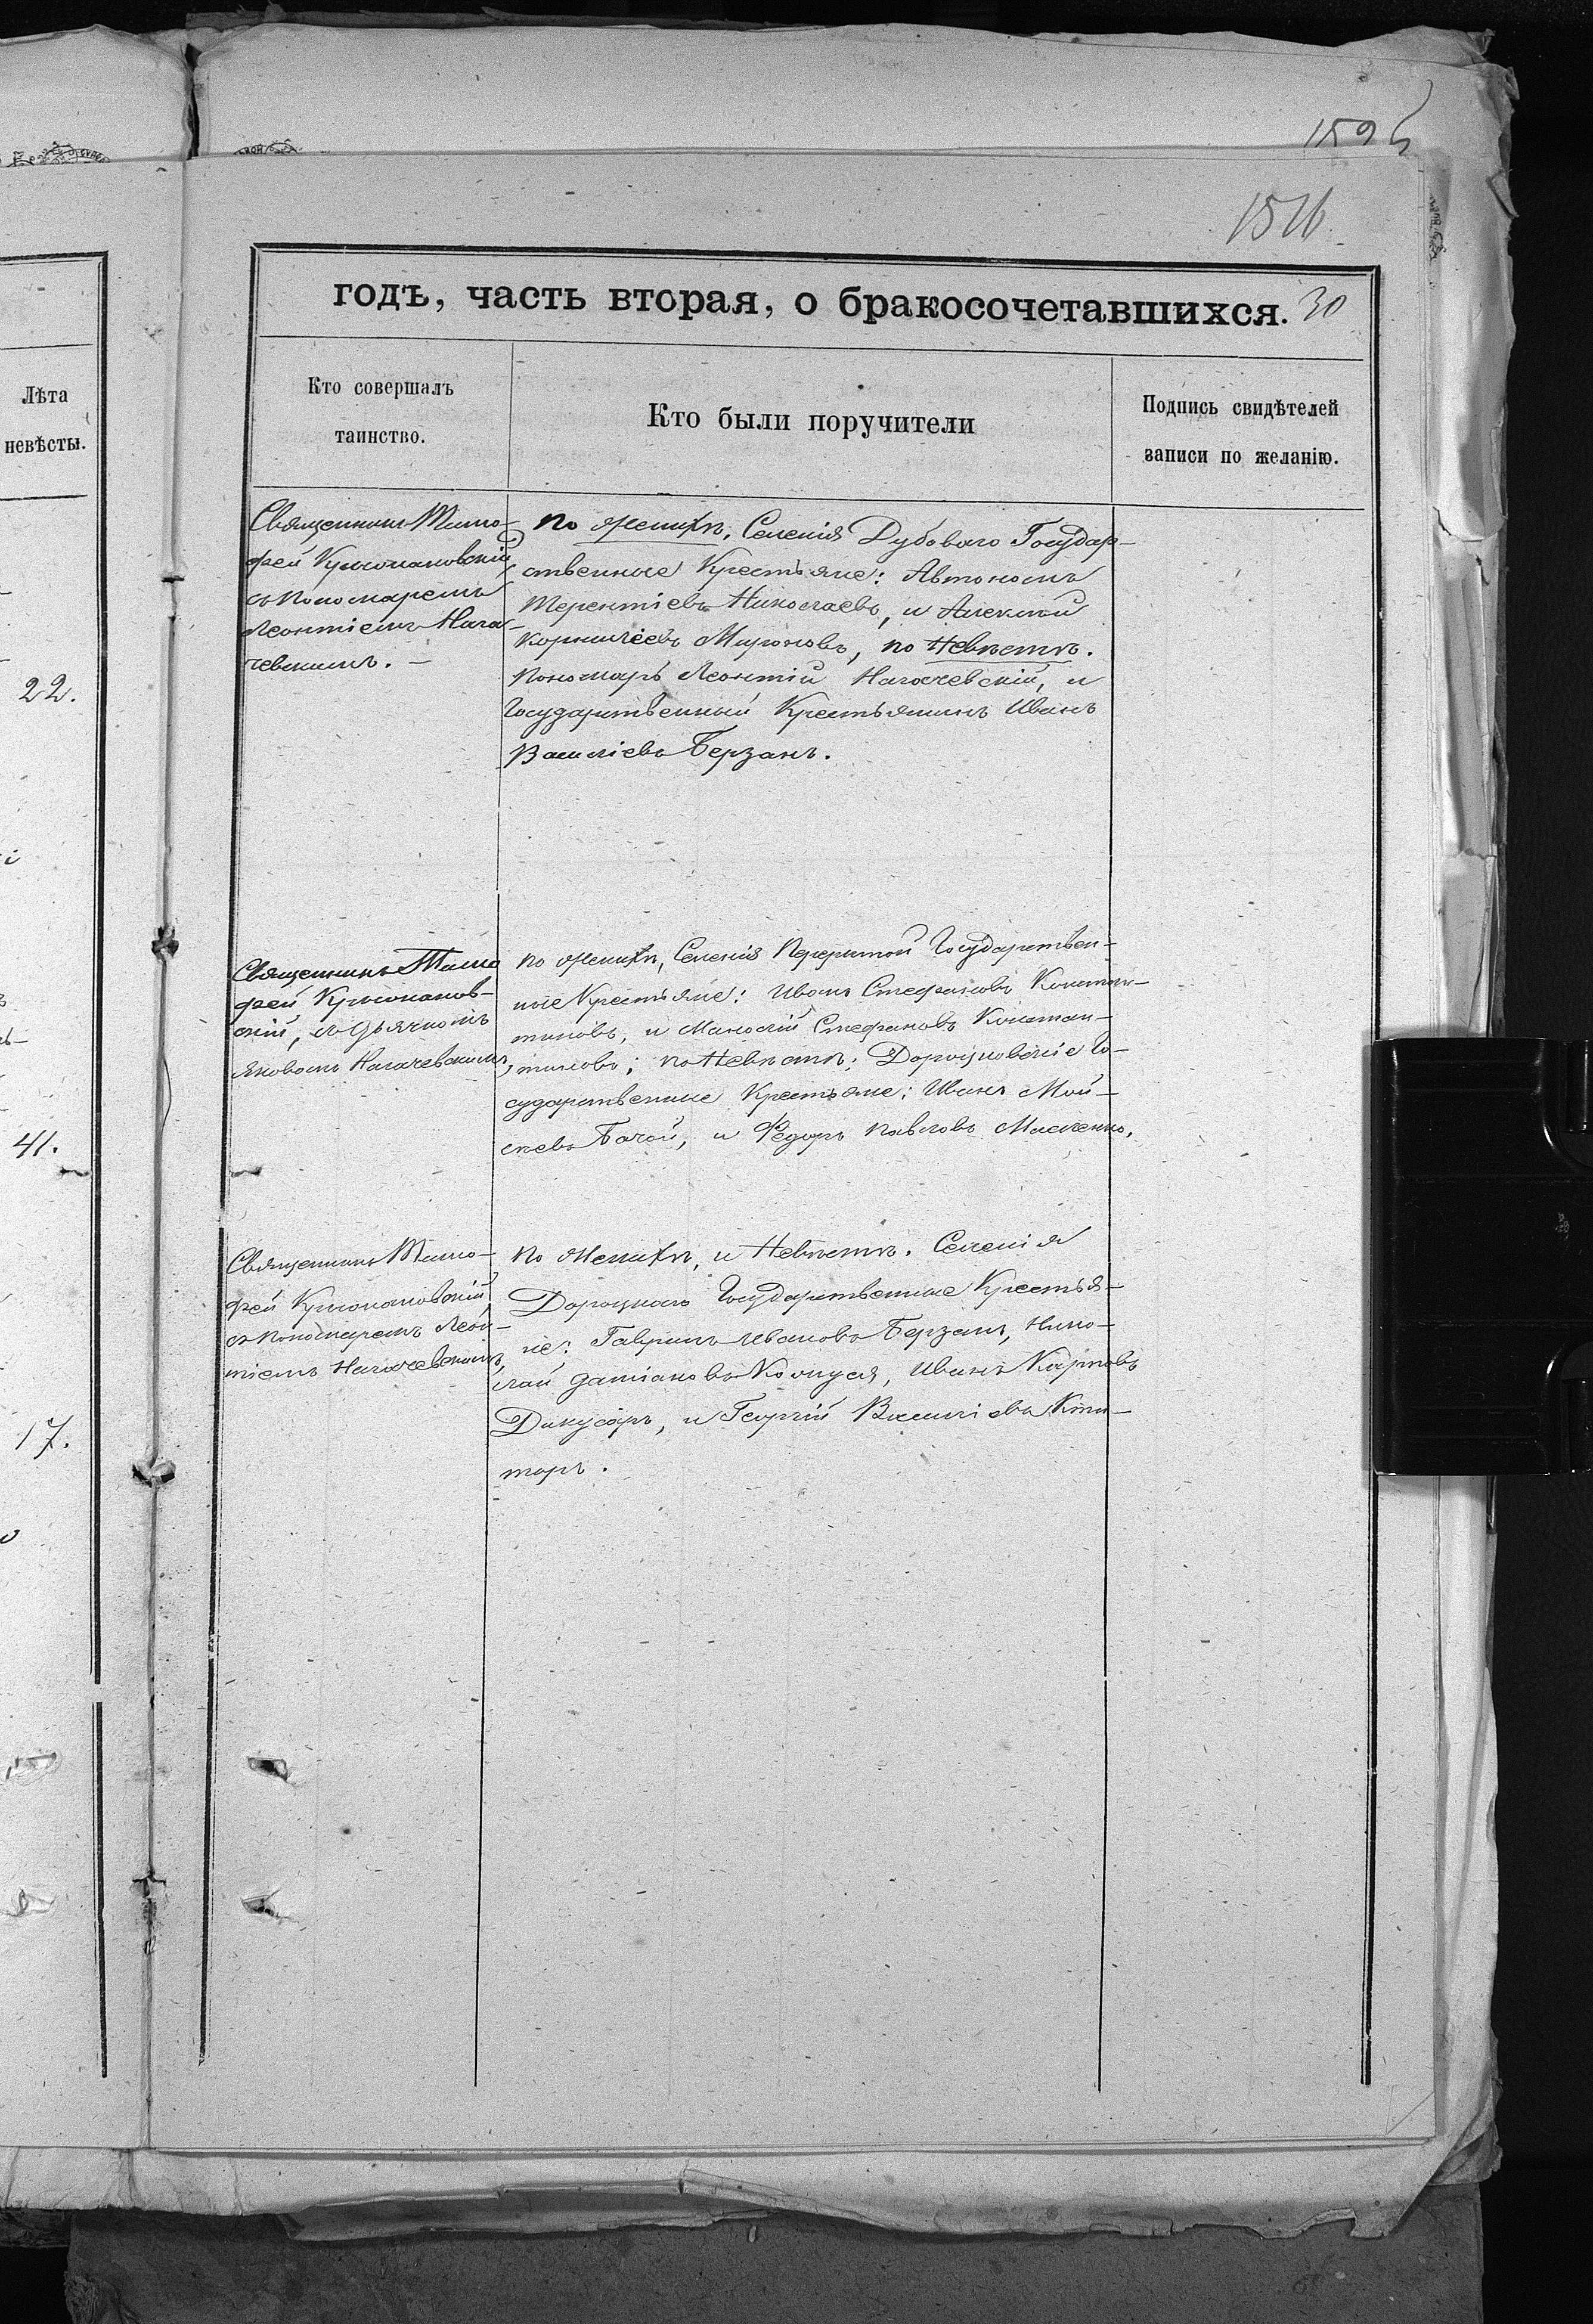 159
1516
годъ, часть вторая, о бракосочетавшихся. 30
Лѣта
невѣсты.
Кто совершалъ
таинство.
Кто были поручители
Подпись свидѣтелей
записи по желанію.
22.
Священникъ Тимо-
фей Крыжановскій,
съ Пономаремъ
Леонтіемъ Нага-
чевскимъ. –
По женихѣ, Селенія Дубоваго Государ-
ственные Крестьяне: Автономъ
Терентіевъ Николаевъ, и Алексѣй
Корнилѣевъ Мироновъ, по Невѣстѣ.
Пономарь Леонтій Нагачевскій, и
Государственный Крестьянинъ Иванъ
Василіевъ Берзанъ.
41.
Священникъ Тимо
фей Крыжанов-
скій, съ Дьячкомъ
Яковомъ Нагачевскимъ,
по женихѣ, Селенія Перерытой Государствен-
ные Крестьяне: Иванъ Стефановъ Констан-
тиновъ, и Манолій Стефановъ Констан-
тиновъ; по Невѣстѣ; Дороцковскіе Го-
сударственные Крестьяне: Иванъ Мой-
сѣевъ Бачой, и Федоръ Павловъ Масленко.
17.
Священникъ Тимо-
фей Крыжановскій,
съ Пономаремъ Леон-
тіемъ Нагачевскимъ,
По Женихѣ, и Невѣстѣ. Селенія
Дороцкаго Государственные Крестья-
не: Гавриилъ Ивановъ Берзанъ, Нико-
лай Даміановъ Колпуся, Иванъ Карповъ
Дикусаръ, и Георгій Василіевъ Кти-
торъ.